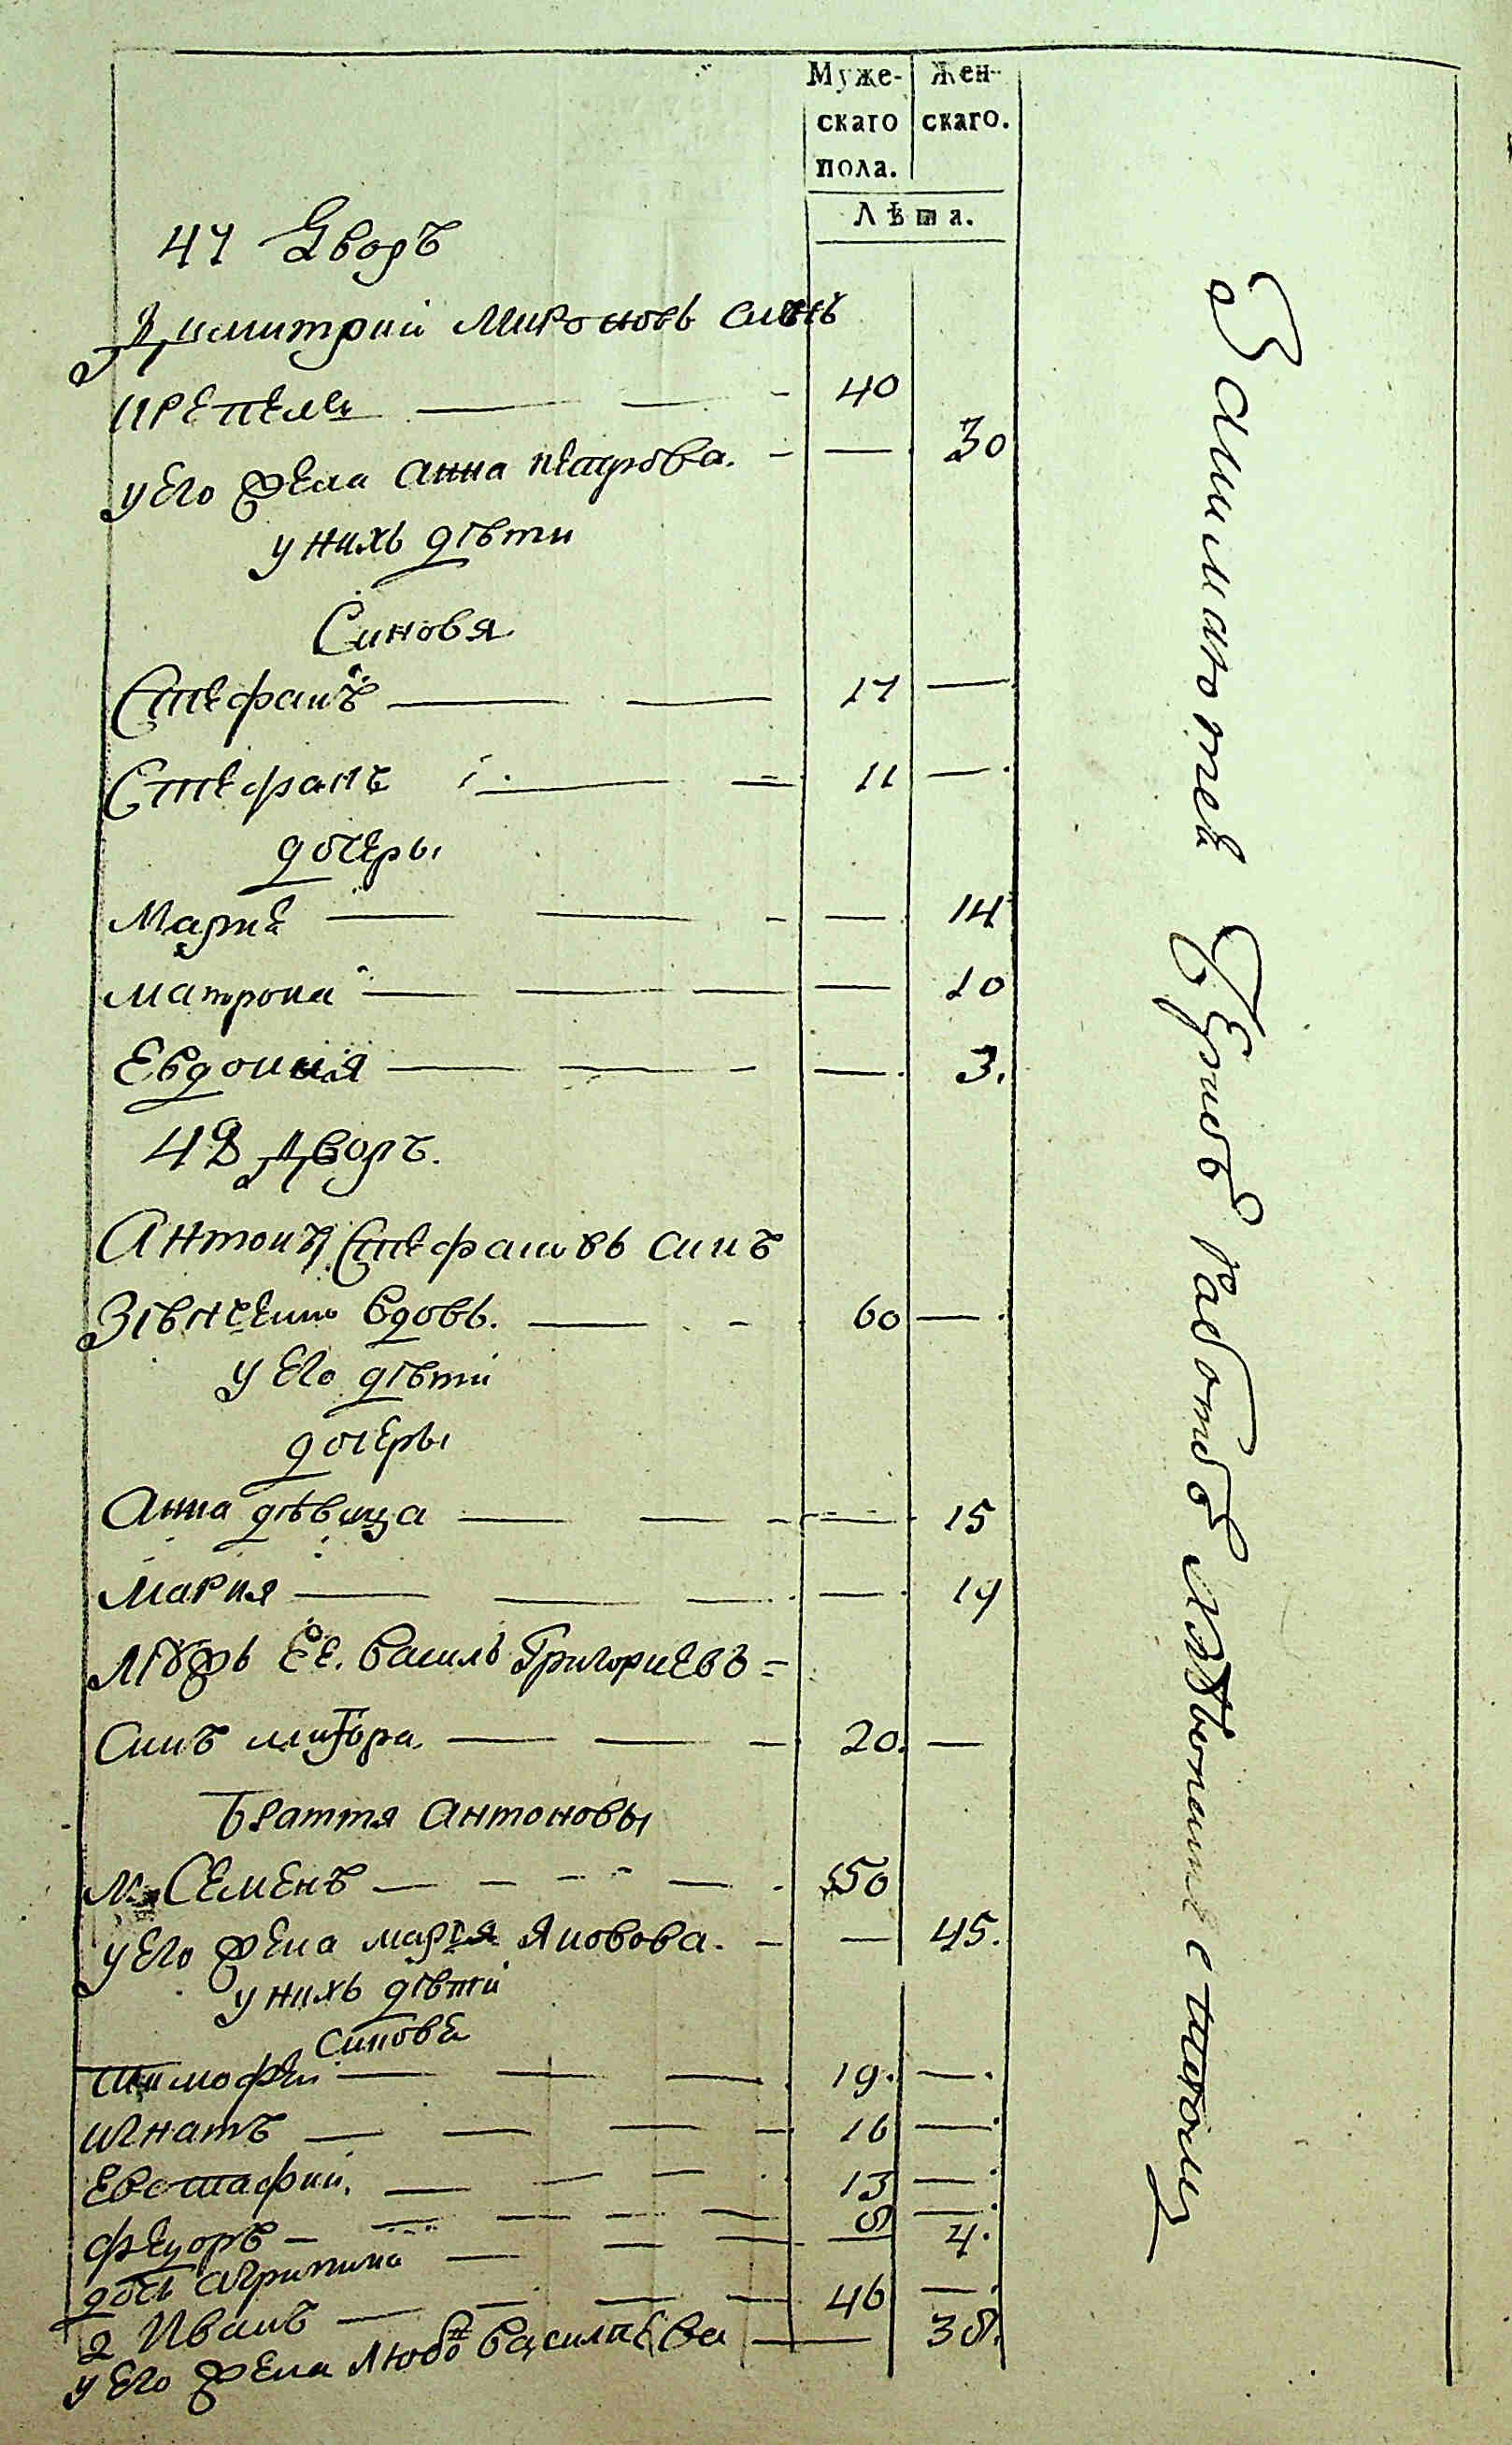 Муже-
скаго
пола.
Жен-
скаго.
Лѣта.
47 Дворъ
Димитрий Мироновъ синъ
40
у Его жена Анна Петрова. 30
у нихь дѣти
Синовя
Стефанъ 17
Стефанъ 11
дочеры
Марие 14
Матрона 10
Евдокия 3.
48 Дворъ.
Антонъ Стефановъ синъ
вдовь. 60
у Его дѣти
дочеры
Анна дѣвица 15
Мария 14
Мужь Еѣ. Василь Григориевъ =
Синъ 20.
Браття Антоновы
Семенъ 50
у Его жена Мария Яковова. 45.
у нихь дѣти
Синове
Тимофѣй 19.
Игнатъ 16
Евстафий. 13
Феѡдоръ 8
дочь Агрипина 4.
2 Иванъ 46
у Его жена Любовъ Василиева 38.
Занимаются работою